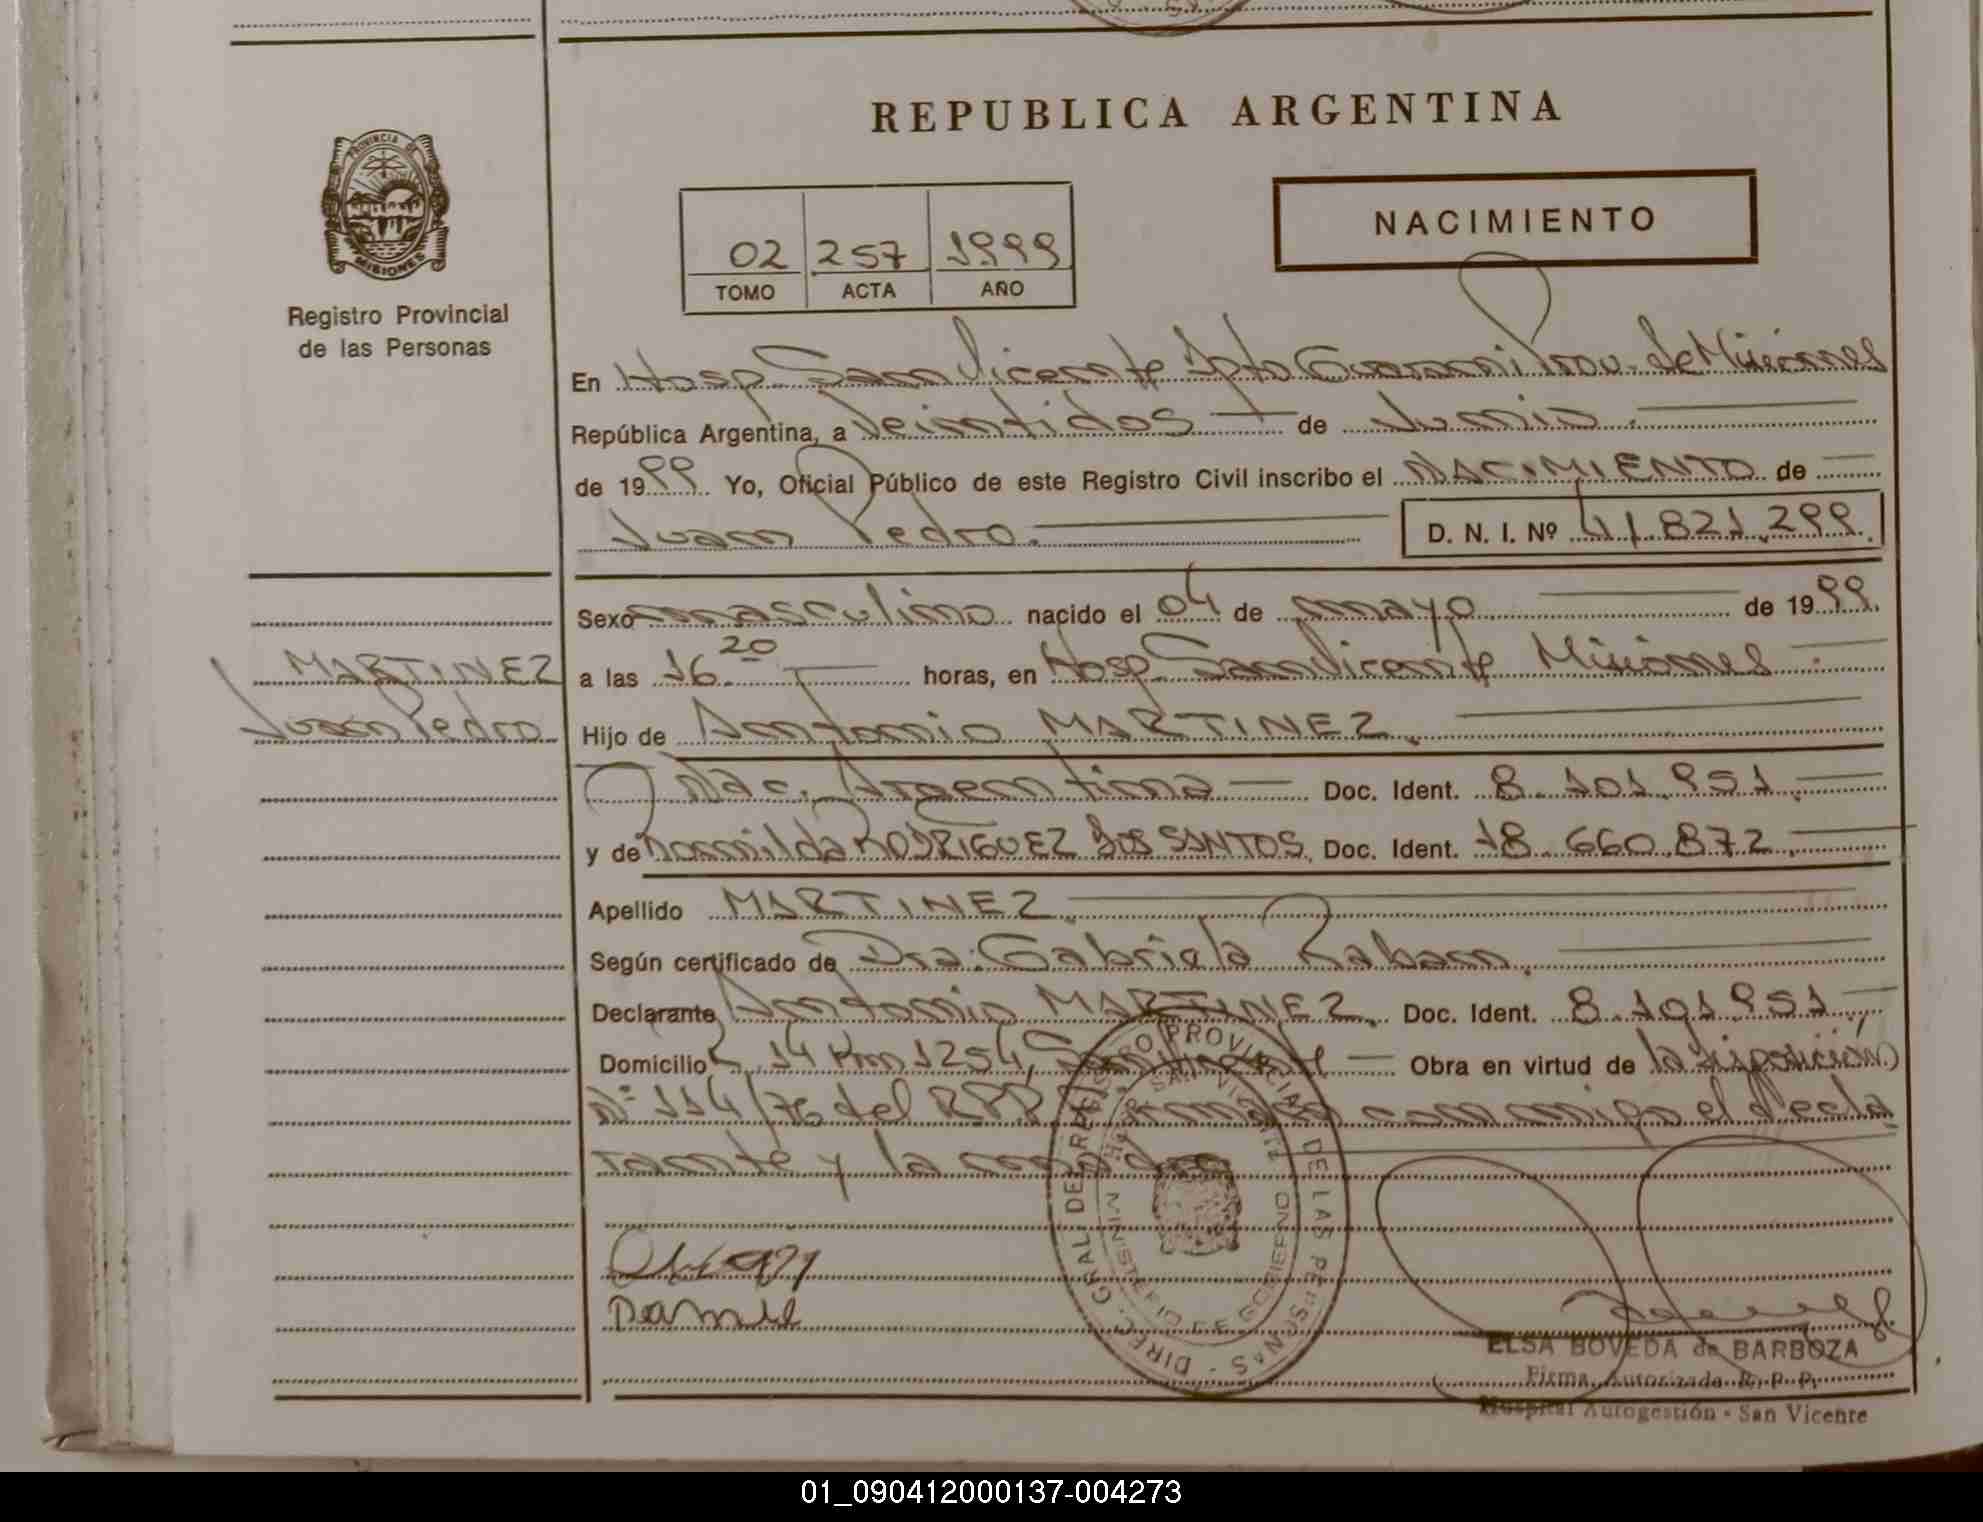 REPUBLICA ARGENTINA
PROVINCIA DE
MISIONES
Registro Provincial
de las Personas
NACIMIENTO
02 257 1999
TOMO ACTA AÑO
En Hosp. San Vicente Dpto Guarani Prov. de Misiones
República Argentina, a Veintidos de Junio.
de 1999. Yo, Oficial Público de este Registro Civil inscribo el NACIMIENTO de
Juan Pedro. D. N. I. Nº 41.821.299.
Sexo masculino nacido el 04 de mayo de 1999.
MARTINEZ
Juan Pedro
a las 16.20 horas, en Hosp. San Vicente Misiones
Hijo de Antonio MARTINEZ.
Nac. Argentina Doc. Ident. 8.101.951.
y de Romilda RODRIGUEZ DOS SANTOS, Doc. Ident. 18.660.872.
Apellido MARTINEZ.
Según certificado de Dra. Gabriela Raban.
Declarante Antonio MARTINEZ. Doc. Ident. 8.101.951
Domicilio 14 Km 1254, San Vicente Obra en virtud de la disposición
Nº 114/76 del RPP. Firman conmigo el decla
rante y la madre
DIREC. GRAL DE REGISTRO PROVINCIAL DE LAS PERSONAS
HOSP. SAN VICENTE
MINISTERIO DE GOBIERNO
ELSA BOVEDA de BARBOZA
Firma Autorizada R. P. P.
Hospital Autogestión - San Vicente
01_090412000137-004273